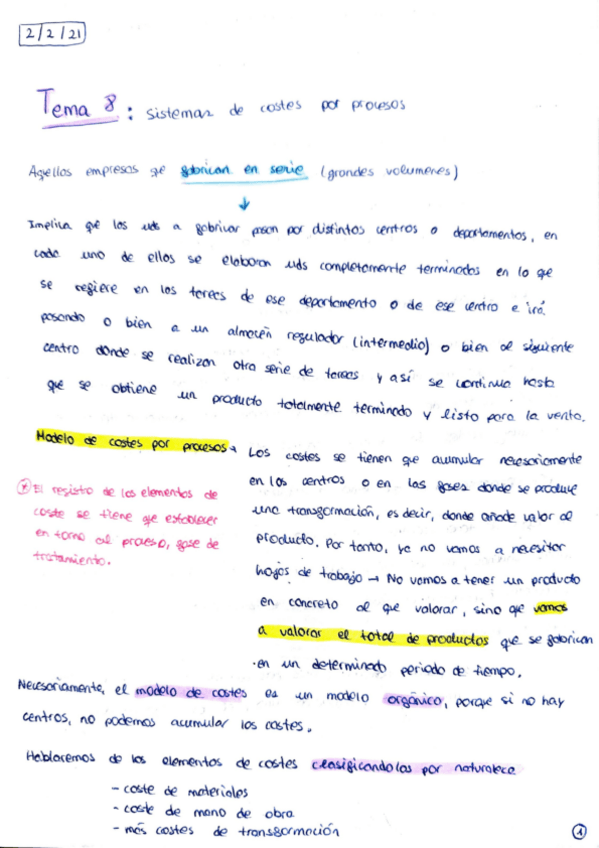 2/2/21
Tema 8: sistemas de costes por procesos
Aquellas empresas qe fabrican en serie (grandes volumenes)
↓
Implica que las uds a fabricar pasan por distintos centros o departamentos, en
cada uno de ellos se elaboran uds completamente terminadas en lo que
se refiere en las tareas de ese departamento o de ese centro e irá
pasando o bien a un almacén regulador (intermedio) o bien al siguiente
centro donde se realizan otra serie de tareas y así se continua hasta
que se obtiene un producto totalmente terminado y listo para la venta.
Modelo de costes por procesos → Los costes se tienen que acumular necesariamente
en los centros o en las fases donde se produce
una transformación, es decir, donde añade valor al
producto. Por tanto, ya no vamos a necesitar
hojas de trabajo → No vamos a tener un producto
en concreto al que valorar, sino que vamos
a valorar el total de productos que se fabrican
en un determinado periodo de tiempo.
* El registro de los elementos de
coste se tiene qe establecer
en torno al proceso, fase de
tratamiento.
Necesariamente, el modelo de costes es un modelo orgánico, porque si no hay
centros, no podemos acumular los costes.
Hablaremos de los elementos de costes clasificandolos por naturaleza
- coste de materiales
- coste de mano de obra
- más costes de transformación
1